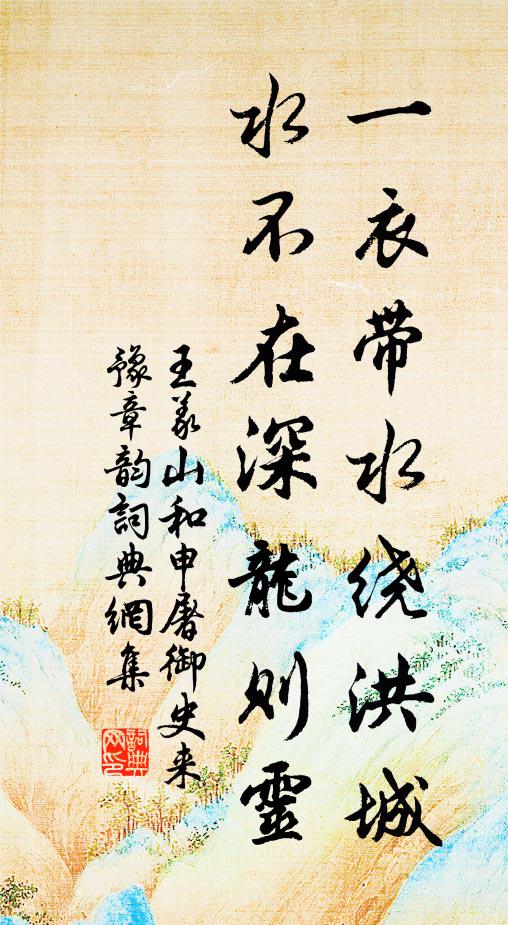 一衣带水绕洪城
水不在深龍则靈
王义山和申屠御史来
豫章韵詞典網集